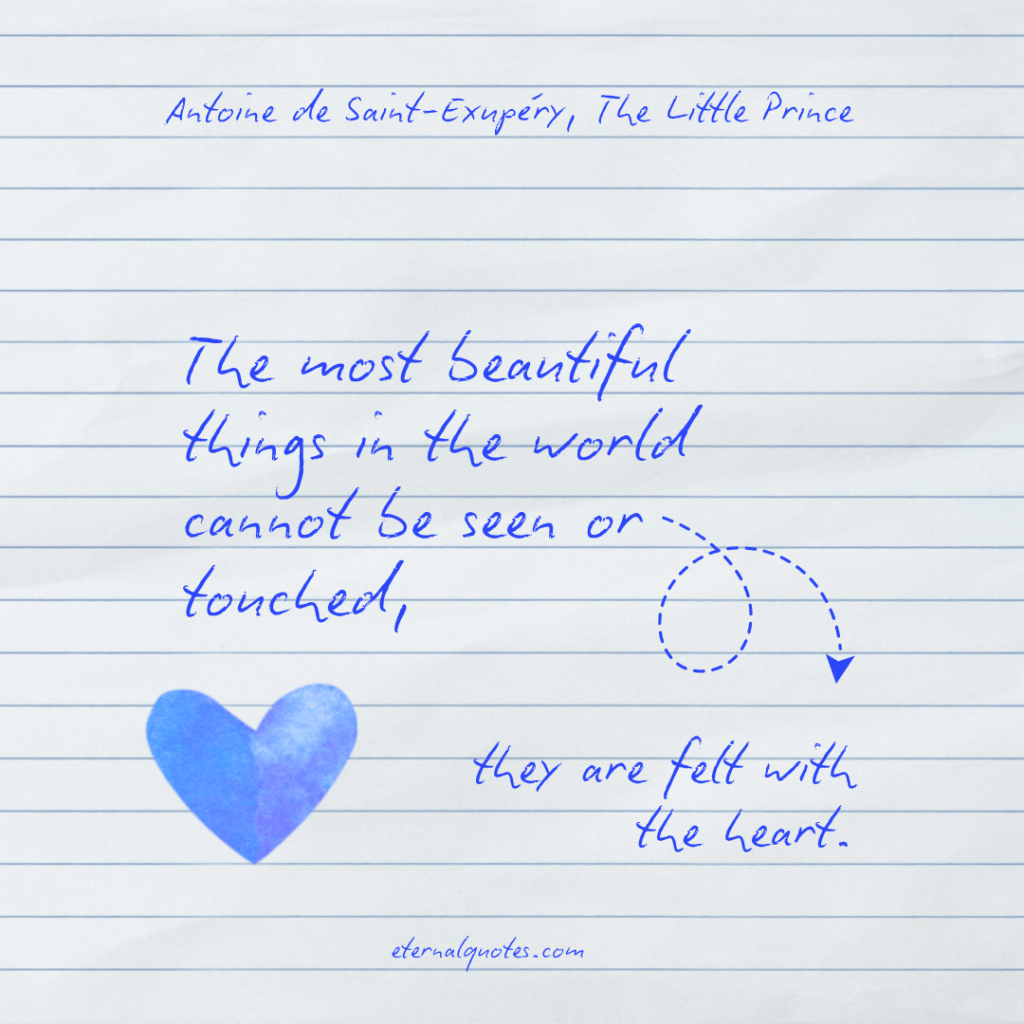 Antoine de Saint-Exupéry, The Little Prince
The most beautiful
things in the world
cannot be seen or
touched,
they are felt with
the heart.
eternalquotes.com